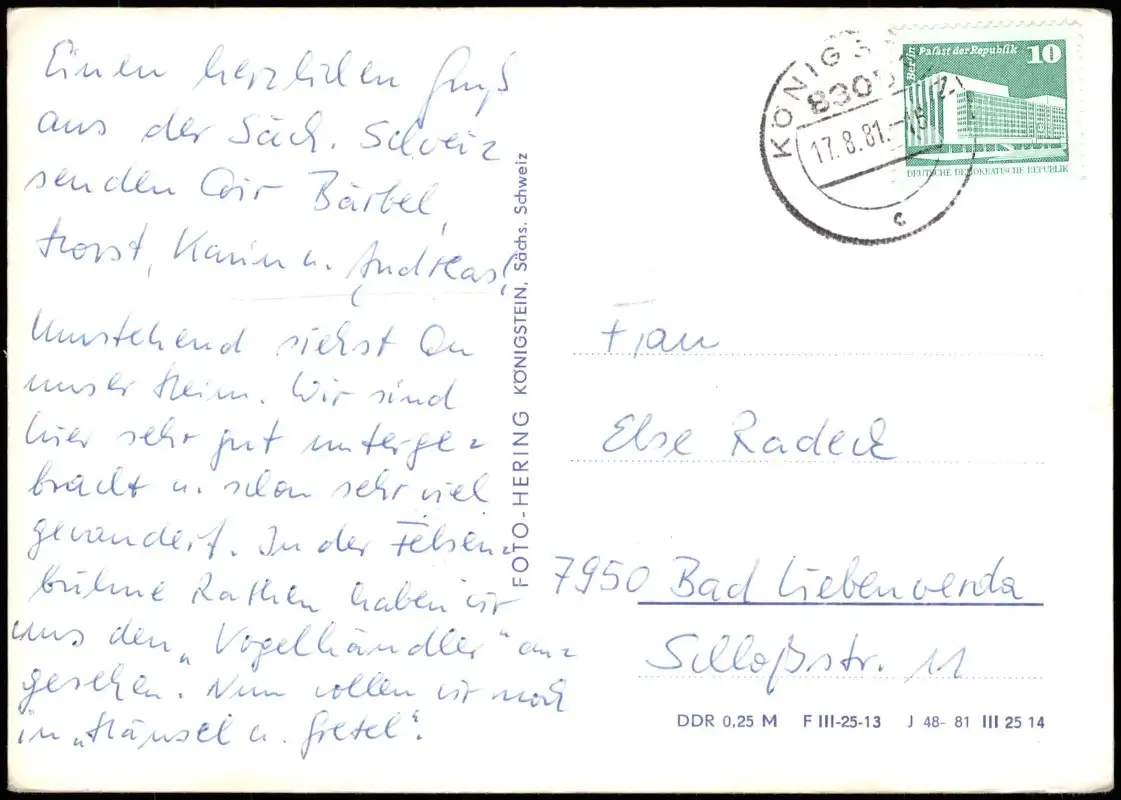 Einen herzlichen Gruß
aus der Säch. Schweiz
senden Dir Bärbel,
Horst, Karin u. Andreas!
Umstehend siehst Du
unser Heim. Wir sind
hier sehr gut unterge-
bracht u. schon sehr viel
gewandert. In der Felsen-
bühne Rathen haben wir
uns den „Vogelhändler" an-
gesehen. Nun wollen wir noch
in „Hänsel u. Gretel".
FOTO-HERING KÖNIGSTEIN, Sächs. Schweiz
KÖNIGS
8305
17.8.81.-18
c
Berlin Palast der Republik 10
DEUTSCHE DEMOKRATISCHE REPUBLIK
Frau
Else Radeck
7950 Bad Liebenwerda
Schloßstr. 11
DDR 0,25 M F III-25-13 J 48- 81 III 25 14